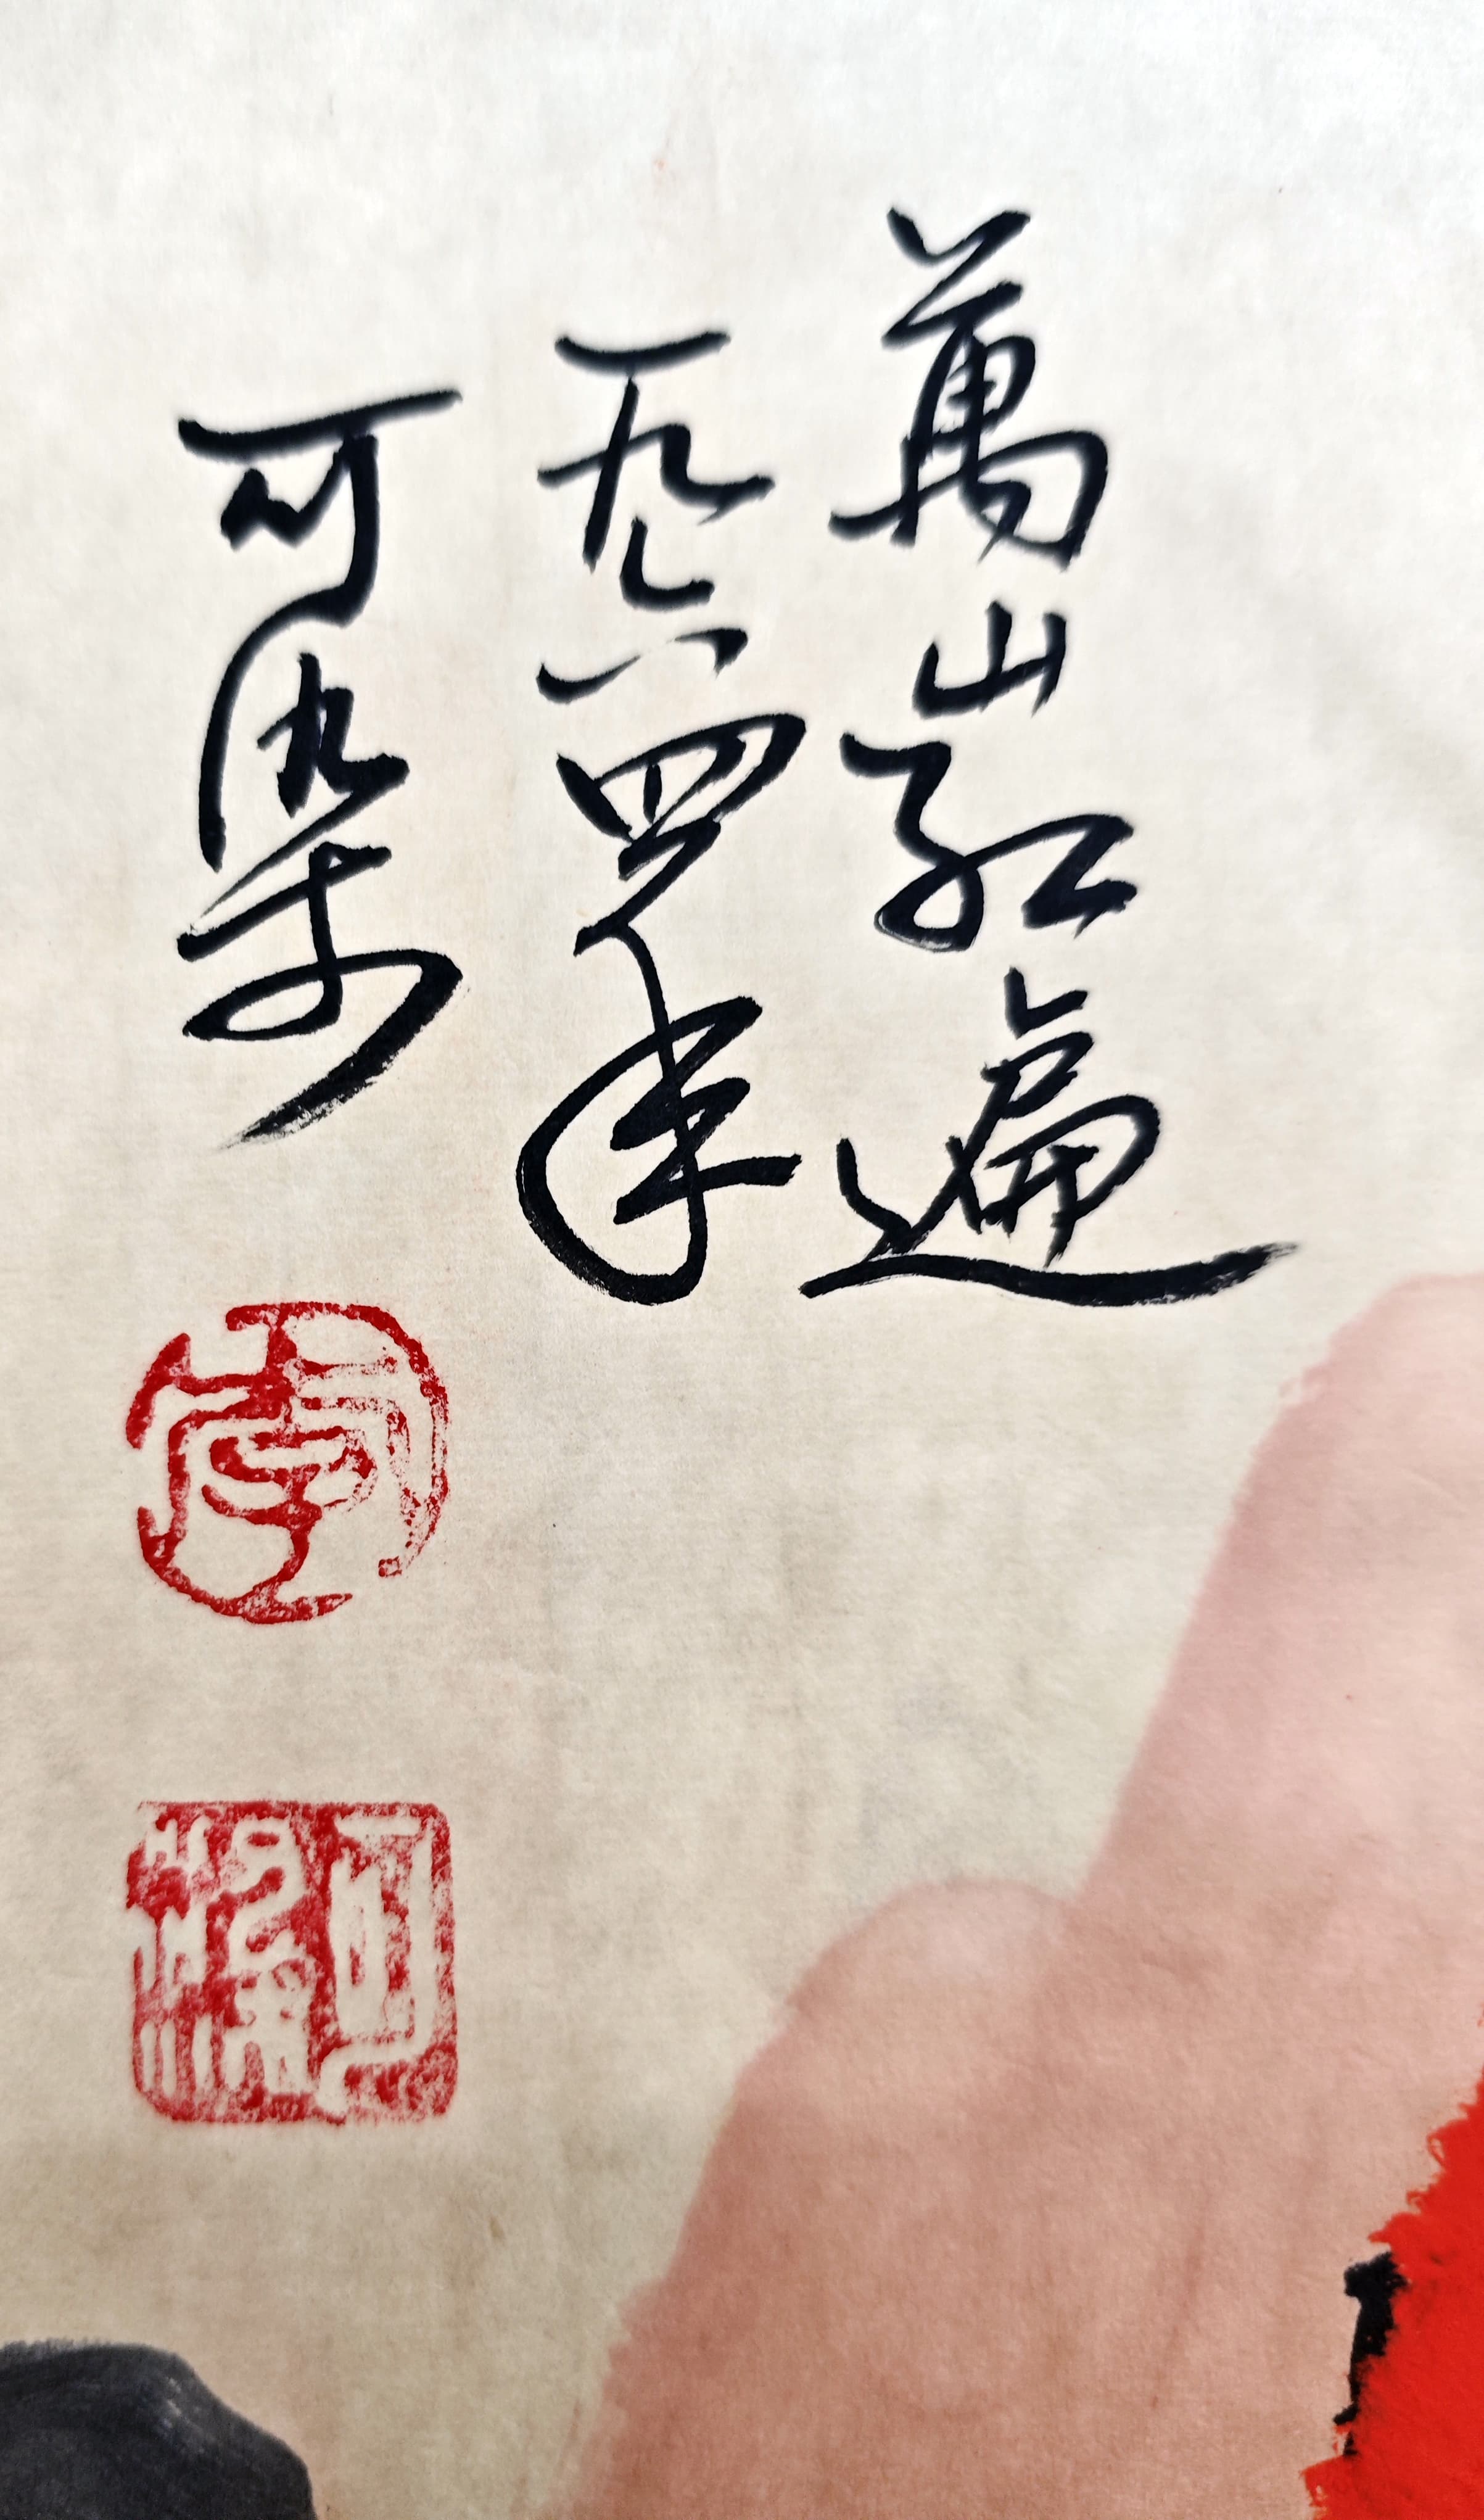 萬山红遍
一九六四年
可染
李
可染